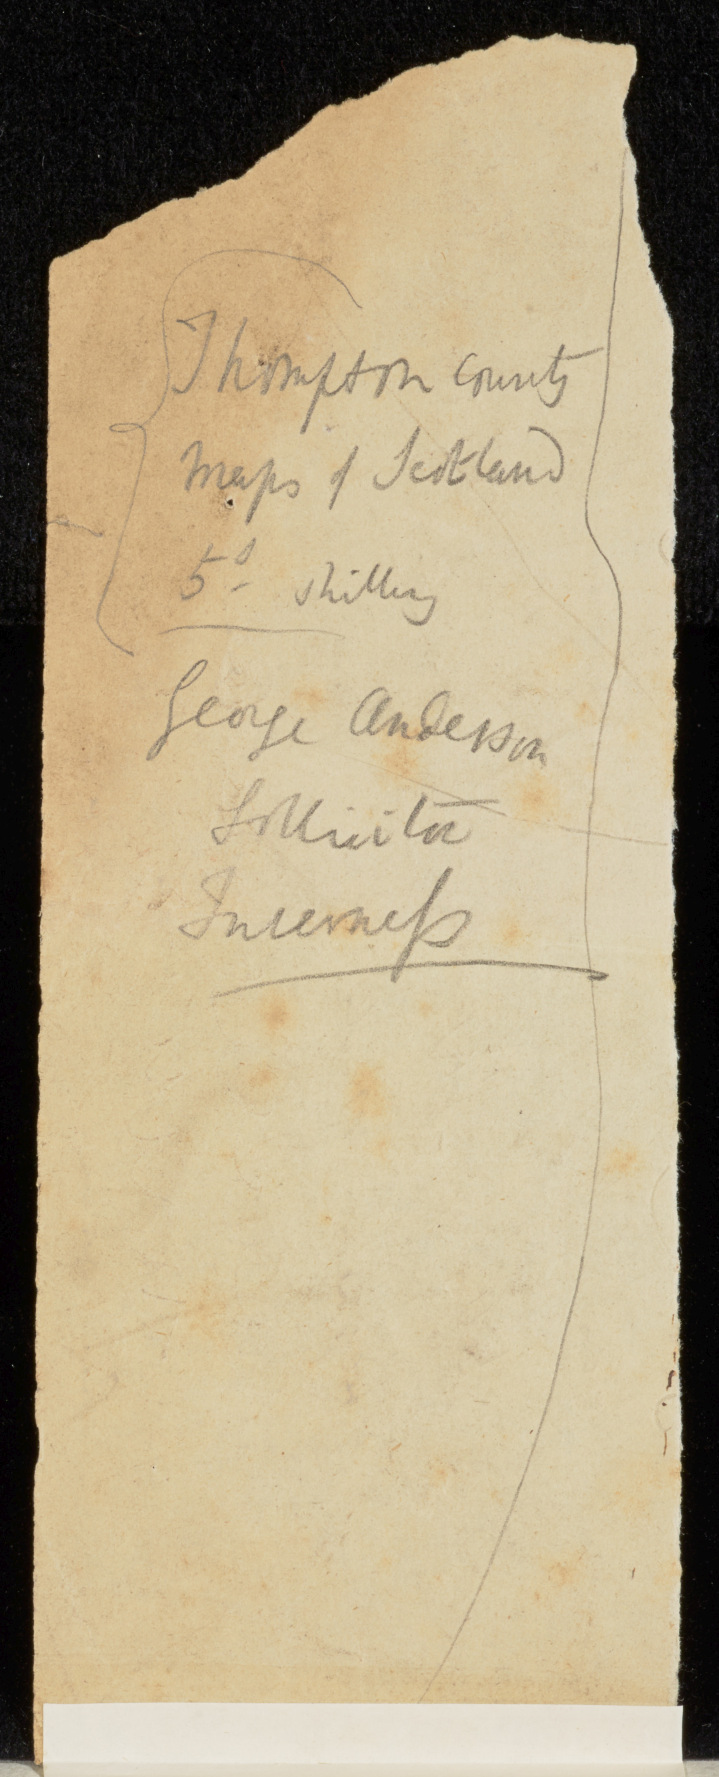 Thompson County
Maps of Scotland
5s shilling
George Anderson
Sollicitor
Inverness